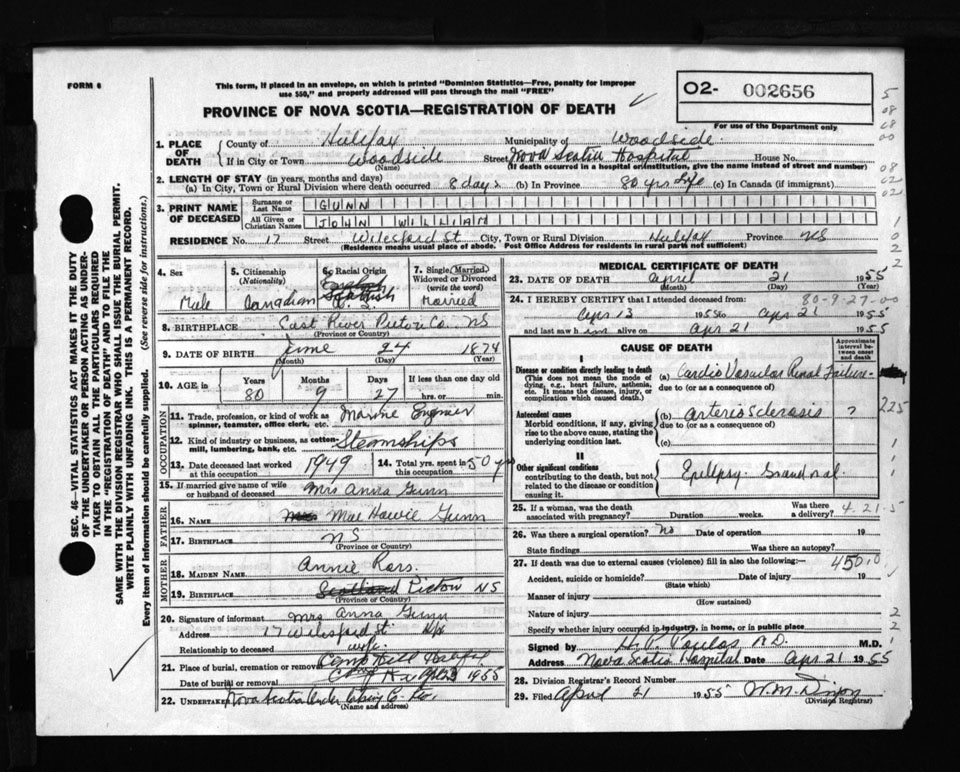 FORM 6
This form, if placed in an envelope, on which is printed "Dominion Statistics—Free, penalty for improper
use $50," and properly addressed will pass through the mail "FREE"
O2- 002656
PROVINCE OF NOVA SCOTIA—REGISTRATION OF DEATH
For use of the Department only
1. PLACE OF DEATH
County of Halifax Municipality of Woodside
If in City or Town Woodside Street Nova Scotia Hospital House No.
(Name) (If death occurred in a hospital or institution, give the name instead of street and number)
2. LENGTH OF STAY (in years, months and days)
(a) In City, Town or Rural Division where death occurred 8 days (b) In Province 80 yrs Life (c) In Canada (if immigrant)
3. PRINT NAME OF DECEASED
Surname or Last Name GUNN
All Given or Christian Names JOHN WILLIAM
RESIDENCE No. 17 Street Wilesford St City, Town or Rural Division Halifax Province NS
(Residence means usual place of abode. Post Office Address for residents in rural parts is not sufficient)
4. Sex Male
5. Citizenship (Nationality) Canadian
6. Racial Origin
7. Single, Married, Widowed or Divorced (write the word) Married
8. BIRTHPLACE East River Pictou Co. NS
(Province or Country)
9. DATE OF BIRTH June 24 1874
(Month) (Day) (Year)
10. AGE in Years 80 Months 9 Days 27 If less than one day old hrs. or min.
OCCUPATION
11. Trade, profession, or kind of work as spinner, teamster, office clerk, etc. Marine Engineer
12. Kind of industry or business, as cotton-mill, lumbering, bank, etc. Steamships
13. Date deceased last worked at this occupation 1949
14. Total yrs. spent in this occupation 50 yrs
15. If married give name of wife or husband of deceased Mrs Anna Gunn
FATHER
16. NAME Gunn
17. BIRTHPLACE NS
(Province or Country)
MOTHER
18. MAIDEN NAME Annie Ross
19. BIRTHPLACE Scotland Pictou NS
(Province or Country)
20. Signature of informant Mrs Anna Gunn
Address 17 Wilesford St Hfx
Relationship to deceased wife
21. Place of burial, cremation or removal Camp Hill
Date of burial or removal 1955
22. UNDERTAKER Nova Scotia Undertaking Co.
(Name and address)
MEDICAL CERTIFICATE OF DEATH
23. DATE OF DEATH April 21 1955
(Month) (Day)
80-9-27-00
24. I HEREBY CERTIFY that I attended deceased from:
Apr 13 1955 to Apr 21 1955
and last saw him alive on Apr 21 1955
CAUSE OF DEATH
Approximate interval between onset and death
I
Disease or condition directly leading to death
(This does not mean the mode of dying, e.g., heart failure, asthenia, etc. It means the disease, injury, or complication which caused death.)
(a) Cardio Vascular Renal Failure
due to (or as a consequence of)
Antecedent causes
Morbid conditions, if any, giving rise to the above cause, stating the underlying condition last.
(b) Arteriosclerosis ?
due to (or as a consequence of)
(c)
225
II
Other significant conditions
contributing to the death, but not related to the disease or condition causing it.
Epilepsy Grand mal.
25. If a woman, was the death associated with pregnancy? Duration weeks. Was there a delivery?
4.21.5
26. Was there a surgical operation? no Date of operation 19
State findings Was there an autopsy?
27. If death was due to external causes (violence) fill in also the following:—
4500
Accident, suicide or homicide? Date of injury 19
(State which)
Manner of injury
(How sustained)
Nature of injury
Specify whether injury occurred in industry, in home, or in public place
Signed by M.D.
Address Nova Scotia Hospital Date Apr 21 1955
28. Division Registrar's Record Number
29. Filed April 21 1955 W. M.
(Division Registrar)
SEC. 46—VITAL STATISTICS ACT MAKES IT THE DUTY
OF THE UNDERTAKER OR PERSON ACTING AS UNDER-
TAKER TO OBTAIN ALL THE PARTICULARS REQUIRED
IN THE "REGISTRATION OF DEATH" AND TO FILE THE
SAME WITH THE DIVISION REGISTRAR WHO SHALL ISSUE THE BURIAL PERMIT.
WRITE PLAINLY WITH UNFADING INK. THIS IS A PERMANENT RECORD.
Every item of information should be carefully supplied. (See reverse side for instructions.)